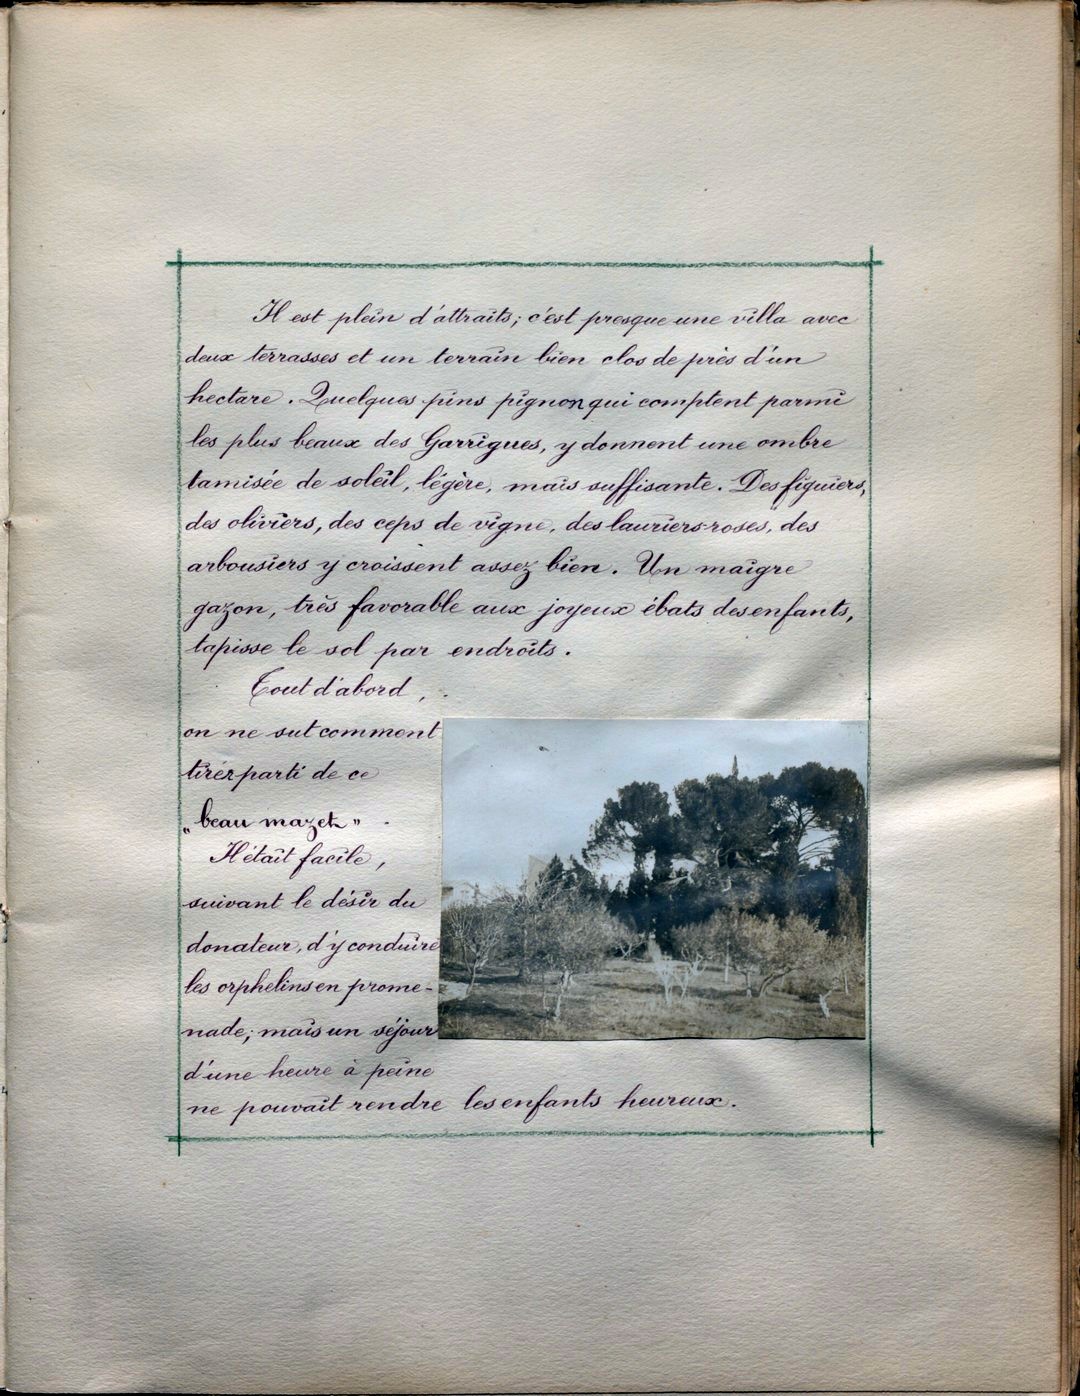 Il est plein d'attraits; c'est presque une villa avec
deux terrasses et un terrain bien clos de près d'un
hectare. Quelques pins pignon qui comptent parmi
les plus beaux des Garrigues, y donnent une ombre
tamisée de soleil, légère, mais suffisante. Des figuiers,
des oliviers, des ceps de vigne, des lauriers-roses, des
arbousiers y croissent assez bien. Un maigre
gazon, très favorable aux joyeux ébats des enfants,
tapisse le sol par endroits.
Tout d'abord,
on ne sut comment
tirer parti de ce
„beau mazet"
Il était facile,
suivant le désir du
donateur, d'y conduire
les orphelins en prome-
nade; mais un séjour
d'une heure à peine
ne pouvait rendre les enfants heureux.